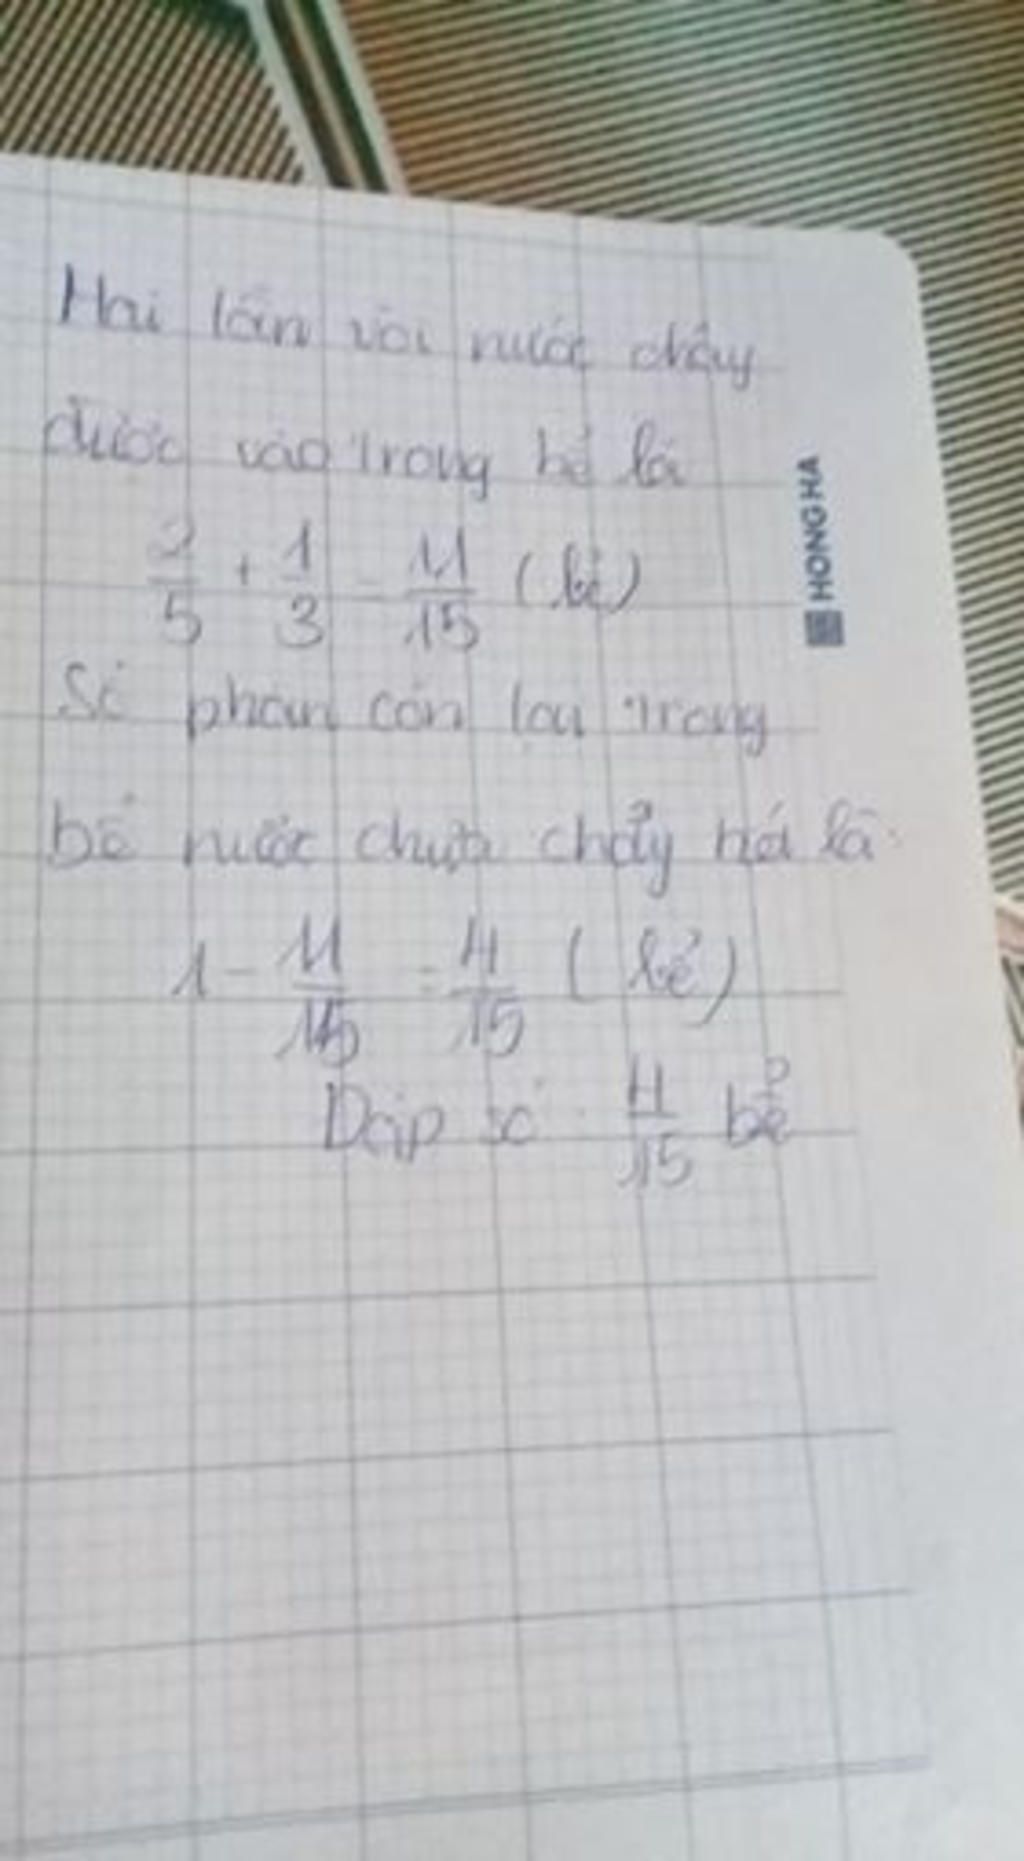 Hai lần vòi nước chảy
được vào trong bể là
2/5 + 1/3 = 11/15 (bể)
Số phần còn lại trong
bể nước chưa chảy là
1 - 11/15 = 4/15 (bể)
Đáp số: 4/15 bể
HONG HA